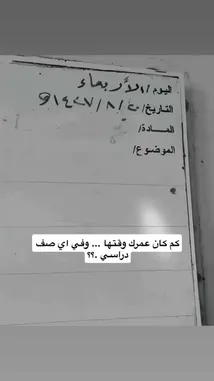 اليوم/ الأربعاء
التاريخ/ ٢٠ / ٨ / ١٤٢٧ھ
المــادة/
الموضوع/
كم كان عمرك وقتها ... وفي اي صف
دراسي .؟؟